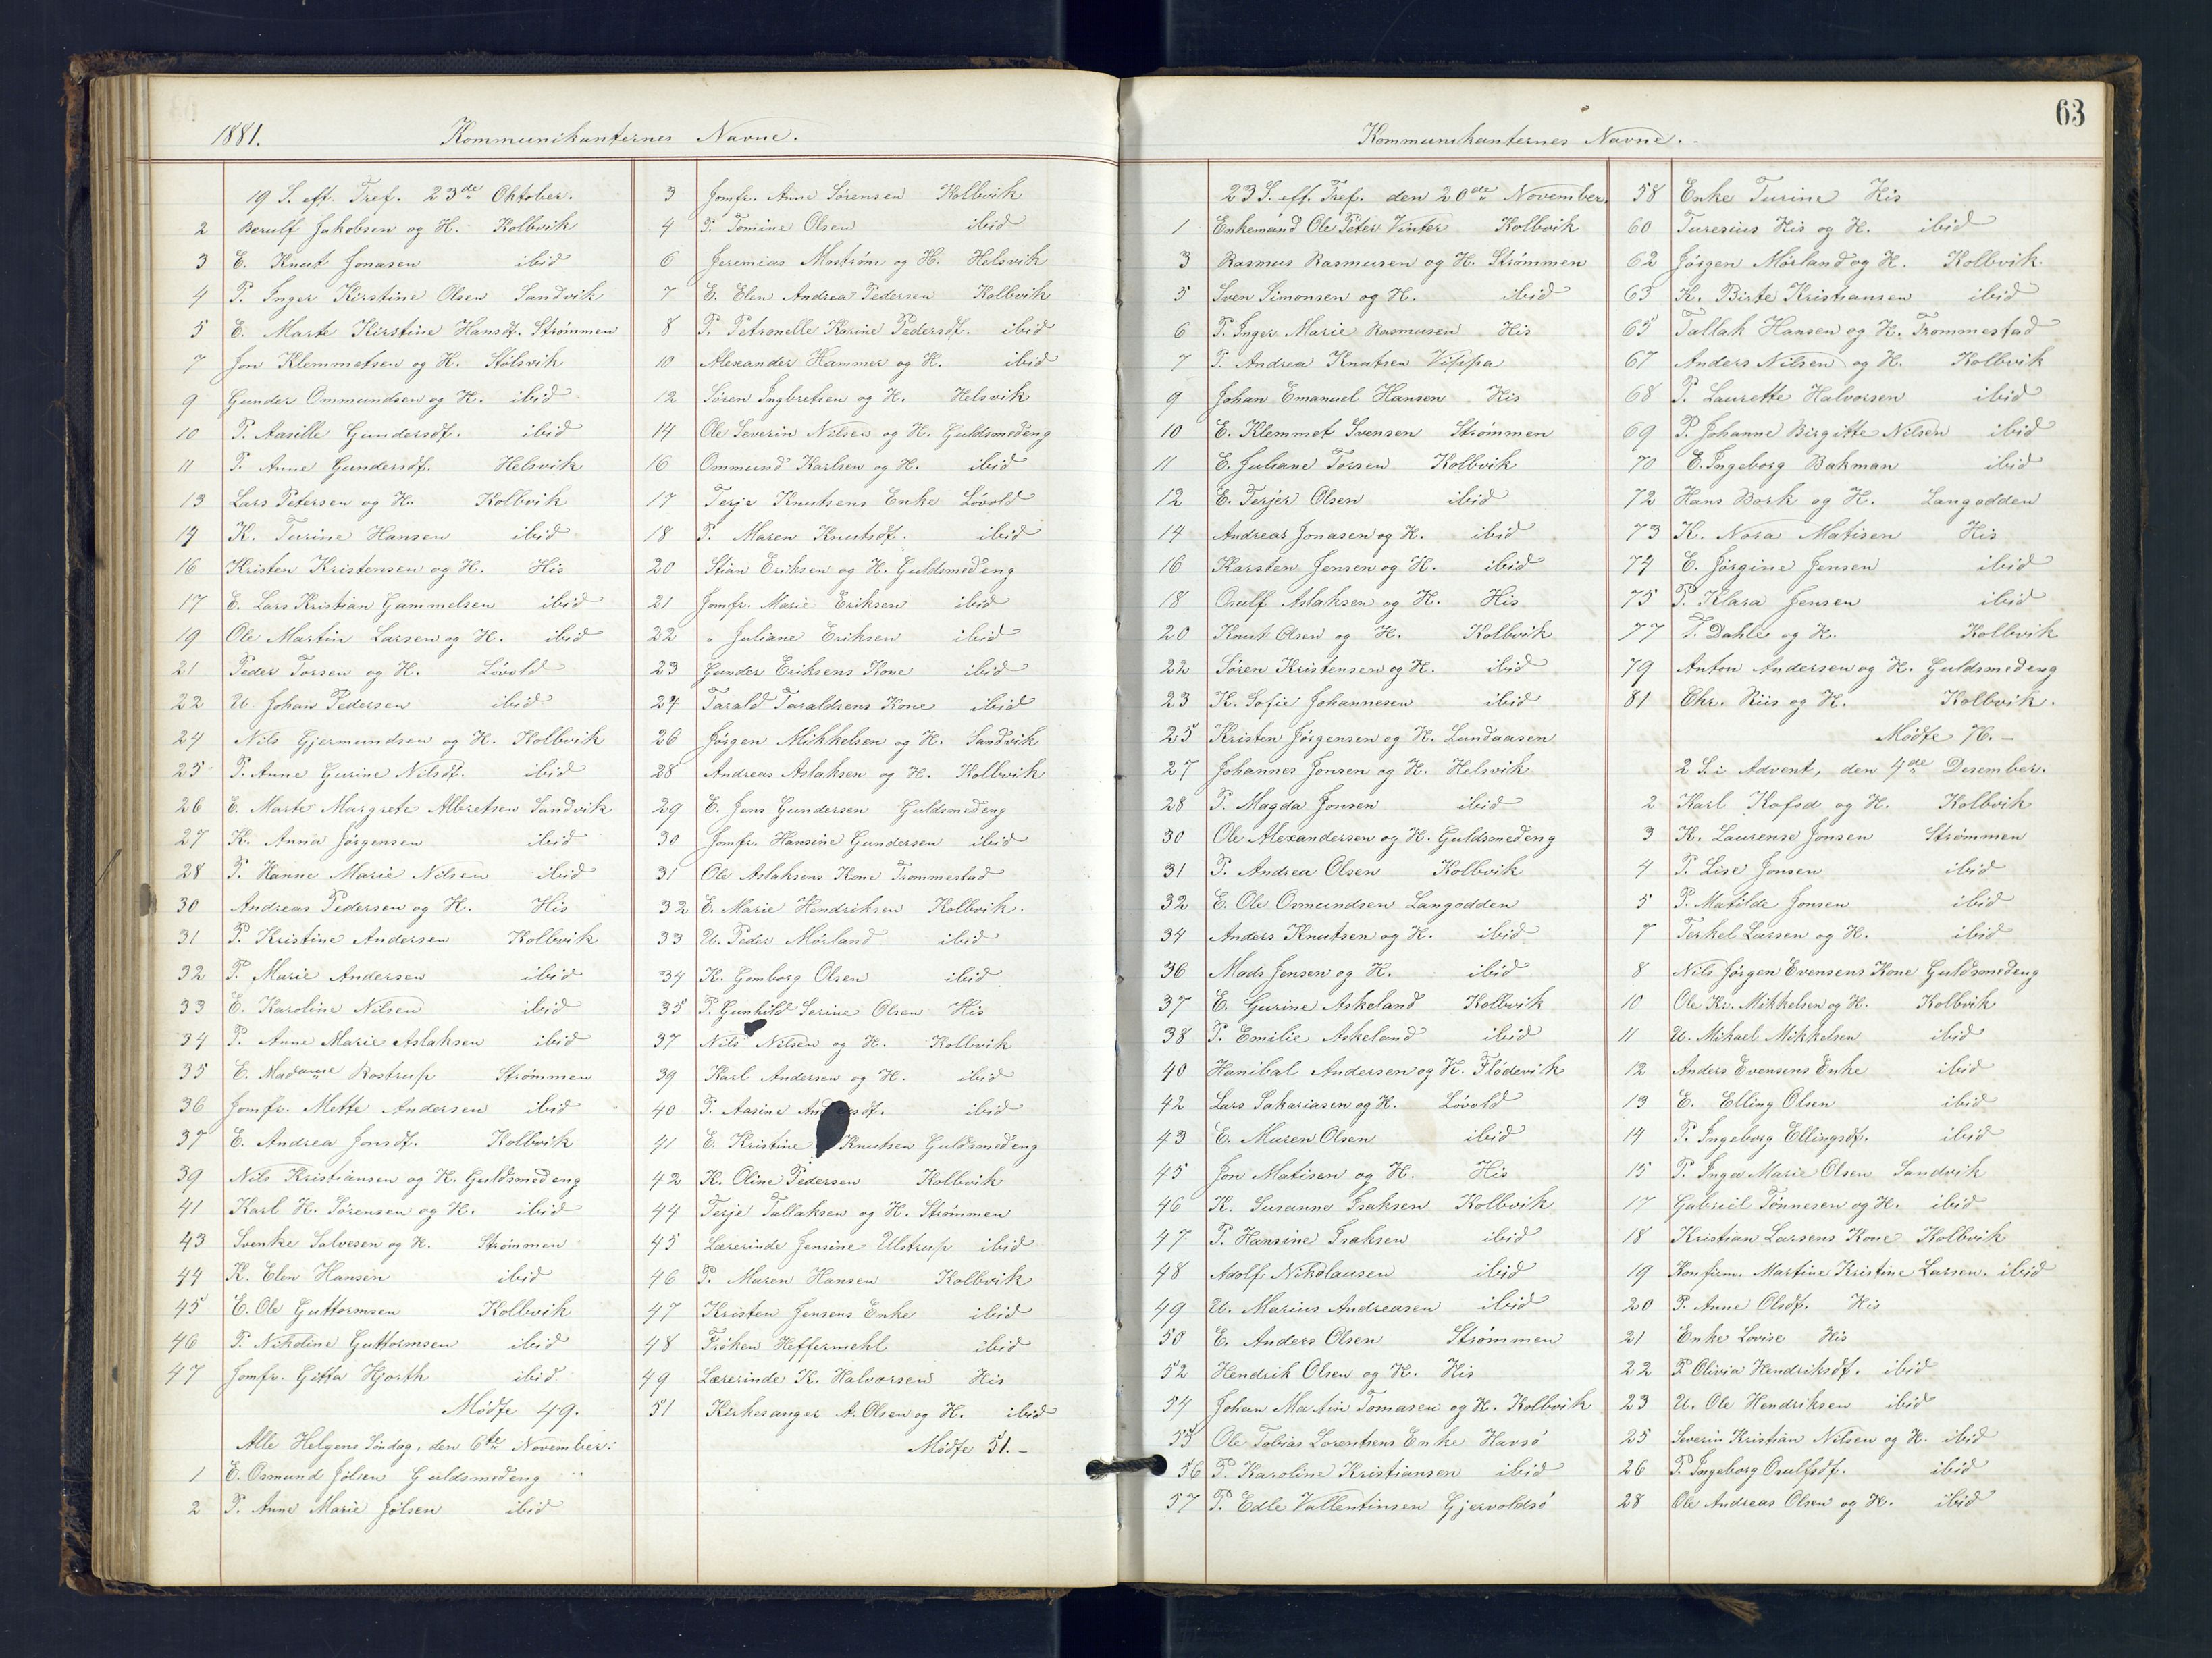 1881. Kommunikanternes Navne.
19 S. eft. Tref. 23de Oktober.
2 Berulf Jakobsen og H. Kolbvik
3 E. Knut Jonasen ibid
4 P. Inger Kirstine Olsen Sandvik
5 E. Marte Kirstine Hansdt. Strømmen
7 Jon Klemmetsen og H. Stølsvik
9 Gunder Ommundsen og H. ibid
10 P. Aasille Gundersdt. ibid
11 P. Anne Gundersdt. Helsvik
13 Lars Petersen og H. Kolbvik
14 K. Turine Hansen ibid
16 Kristen Kristensen og H. His
17 E. Lars Kristian Gammelsen ibid
19 Ole Martin Larsen og H. ibid
21 Peder Torsen og H. Løvold
22 U. Johan Pedersen ibid
24 Nils Gjermundsen og H. Kolbvik
25 P. Anne Gurine Nilsdt. ibid
26 E. Marte Margrete Albretsen Sandvik
27 K. Anna Jørgensen ibid
28 P. Hanne Marie Nilsen ibid
30 Andreas Pedersen og H. His
31 P. Kristine Andersen Kolbvik
32 P. Marie Andersen ibid
33 E. Karoline Nilsen ibid
34 P. Anne Marie Aslaksen ibid
35 E. Madame Rostrup Strømmen
36 Jomfr. Mette Andersen ibid
37 E. Andrea Jonsdt. Kolbvik
39 Nils Kristiansen og H. Guldsmedeng
41 Karl H. Sørensen og H. ibid
43 Svenke Salvesen og H. Strømmen
44 K. Elen Hansen ibid
45 E. Ole Guttormsen Kolbvik
46 P. Nikoline Guttormsen ibid
47 Jomfr. Gitta Hjorth ibid
Mødte 49.
Alle Helgens Søndag, den 6te November:
1 E. Osmund Jølsen Guldsmedeng
2 P. Anne Marie Jølsen ibid
3 Jomfr. Anne Sørensen Kolbvik
4 P. Tomine Olsen ibid
6 Jeremias Mostrøm og H. Helsvik
7 E. Elen Andrea Pedersen Kolbvik
8 P. Petronelle Karine Pedersdt. ibid
10 Alexander Hammer og H. ibid
12 Søren Ingbretsen og H. Helsvik
14 Ole Severin Nilsen og H. Guldsmedeng
16 Ommund Karlsen og H. ibid
17 Terje Knutsens Enke Løvold
18 P. Maren Knutsdt. ibid
20 Stian Eriksen og H. Guldsmedeng
21 Jomfr. Marie Eriksen ibid
22 " Juliane Eriksen ibid
23 Gunder Eriksens Kone ibid
24 Tarald Taraldsens Kone ibid
26 Jørgen Mikkelsen og H. Sandvik
28 Andreas Aslaksen og H. Kolbvik
29 E. Jens Gundersen Guldsmedeng
30 Jomfr. Hansine Gundersen ibid
31 Ole Aslaksens Kone Trommestad
32 E. Marie Hendriksen Kolbvik.
33 U. Peder Mørland ibid
34 K. Gomborg Olsen ibid
35 P. Gunhild Serine Olsen His
37 Nils Nilsen og H. Kolbvik
39 Karl Andersen og H. ibid
40 P. Aasine ibid
41 E. Kristine Knutsen Guldsmedeng
42 K. Oline Pedersen Kolbvik
44 Terje Tallaksen og H. Strømmen
45 Lærerinde Jensine Ulstrup ibid
46 P. Maren Hansen Kolbvik
47 Kristen Jensens Enke ibid
48 Frøken Heffermehl ibid
49 Lærerinde K. Halvorsen His
51 Kirkesanger A. Olsen og H. ibid
Mødte 51.–
63
Kommunikanternes Navne.
23 S. eft. Tref. den 20de November.
1 Enkemand Ole Peter Vinter Kolbvik
3 Rasmus Rasmusen og H. Strømmen
5 Sven Simonsen og H. ibid
6 P. Inger Marie Rasmusen His
7 P. Andrea Knutsen Vippa
9 Johan Emanuel Hansen His
10 E. Klemmet Svensen Strømmen
11 E. Juliane Torsen Kolbvik
12 E. Terjer Olsen ibid
14 Andreas Jonasen og H. ibid
16 Karsten Jensen og H. ibid
18 Osulf Aslaksen og H. His
20 Knut Olsen og H. Kolbvik
22 Søren Kristensen og H. ibid
23 K. Sofie Johannesen ibid
25 Kristen Jørgensen og H. Lundaasen
27 Johannes Jonsen og H. Helsvik
28 P. Magda Jonsen ibid
30 Ole Alexandersen og H. Guldsmedeng
31 P. Andrea Olsen Kolbvik
32 E. Ole Osmundsen Langodden
34 Anders Knutsen og H. ibid
36 Mads Jensen og H. ibid
37 E. Gurine Askeland Kolbvik
38 P. Emilie Askeland ibid
40 Hanibal Andersen og H. Flødevik
42 Lars Sakariasen og H. Løvold
43 E. Maren Olsen ibid
45 Jon Matisen og H. His
46 K. Susanne Isaksen Kolbvik
47 P. Hansine Isaksen ibid
48 Adolf Nikolausen ibid
49 U. Marius Andreasen ibid
50 E. Anders Olsen Strømmen
52 Hendrik Olsen og H. His
54 Johan Martin Tomasen og H. Kolbvik
55 Ole Tobias Lorentsens Enke Havsø
56 P. Karoline Kristiansen ibid
57 P. Edle Vallentinsen Gjervoldsø
58 Enke Turine His
60 Turesius His og H. ibid
62 Jørgen Mørland og H. Kolbvik
63 K. Birte Kristiansen ibid
65 Tallak Hansen og H. Trommestad
67 Anders Nilsen og H. Kolbvik
68 P. Laurette Halvorsen ibid
69 P. Johanne Birgitte Nilsen ibid
70 E. Ingeborg Bakman ibid
72 Hans Bork og H. Langodden
73 K. Nora Matisen His
74 E. Jørgine Jensen ibid
75 P. Klara Jensen ibid
77 Dahle og H. Kolbvik
79 Anton Andersen og H. Guldsmedeng
81 Chr. Riis og H. Kolbvik.
Mødte 76.–
2 S. i Advent, den 4de Desember.
2 Karl Kofod og H. Kolbvik
3 K. Laurense Jonsen Strømmen
4 P. Lise Jonsen ibid
5 P. Matilde Jonsen ibid
7 Terkel Larsen og H. ibid
8 Nils Jørgen Evensens Kone Guldsmedeng
10 Ole Kr. Mikkelsen og H. Kolbvik
11 U. Mikael Mikkelsen ibid
12 Anders Evensens Enke ibid
13 E. Elling Olsen ibid
14 P. Ingeborg Ellingsdt. ibid
15 P. Inga Marie Olsen Sandvik
17 Gabriel Tønnesen og H. ibid
18 Kristian Larsens Kone Kolbvik
19 Konfirm. Martine Kristine Larsen. ibid
20 P. Anne Olsdt. His
21 Enke Lovise His
22 P. Olivia Hendriksdt. ibid
23 U. Ole Hendriksen ibid
25 Severin Kristian Nilsen og H. ibid
26 P. Ingeborg Osulfsdt. ibid
28 Ole Andreas Olsen og H. ibid